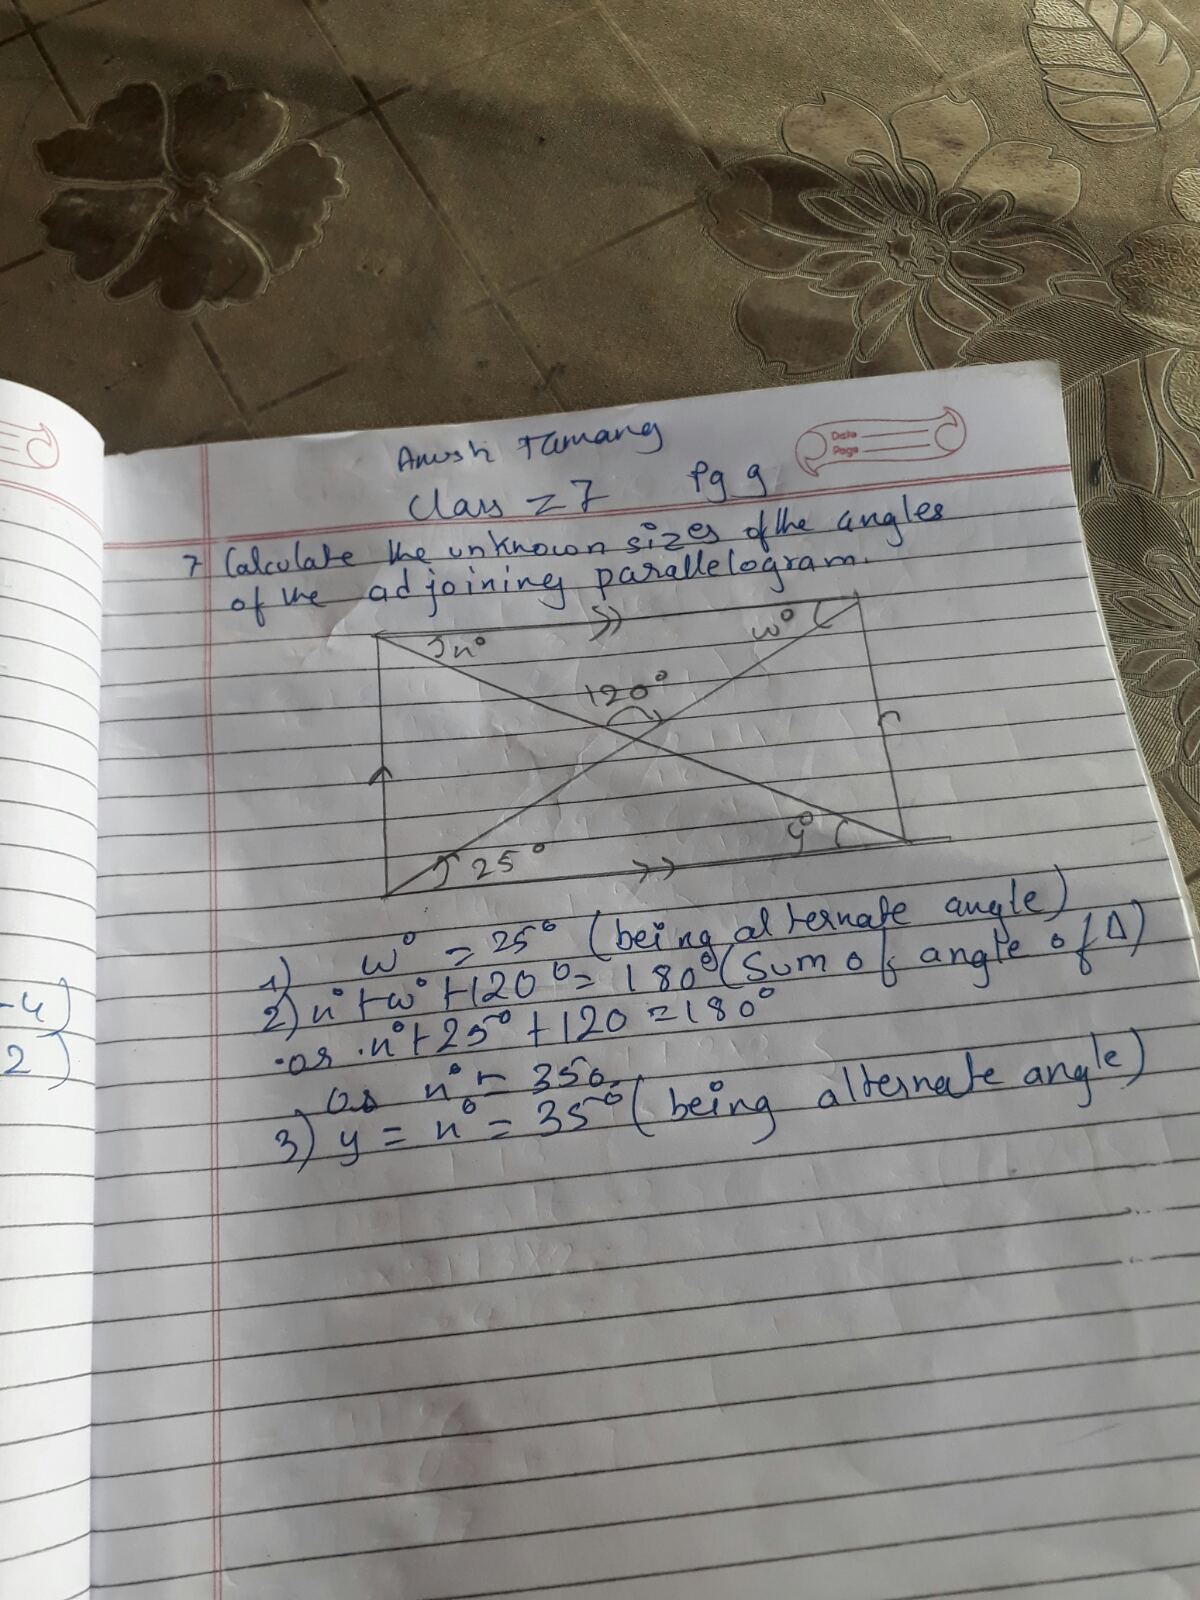 Anush Tamang
Date
Page
Class = 7 Pg 9
7 Calculate the unknown sizes of the angles
of the adjoining parallelogram.
x° w°
120°
25° y°
1) w° = 25° (being alternate angle)
2) x° + w° + 120° = 180° (Sum of angle of Δ)
or x° + 25° + 120 = 180°
or x° = 35°
3) y = x° = 35° (being alternate angle)
-4)
2)